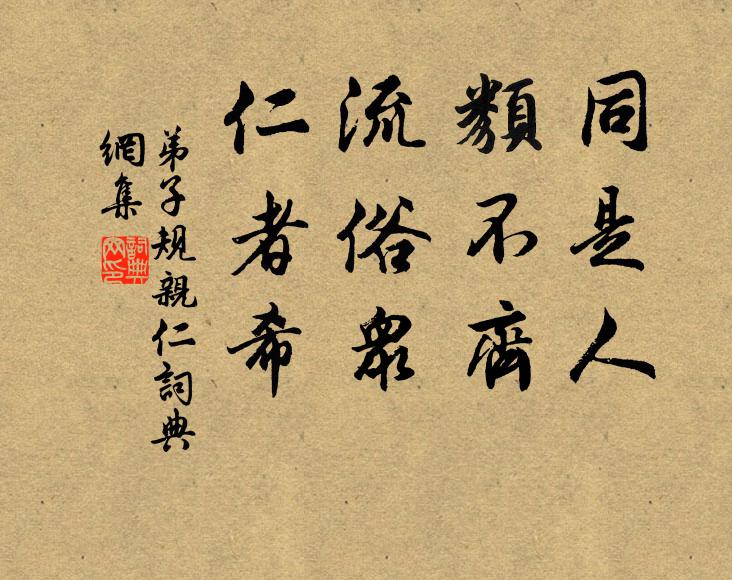 同是人
類不齊
流俗衆
仁者希
弟子規親仁詞典
網集
詞典
网印